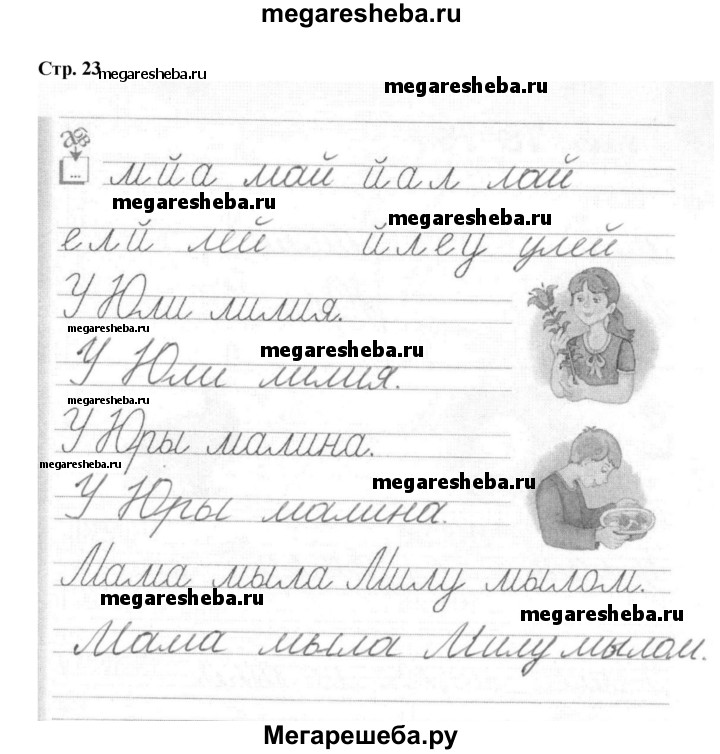 megaresheba.ru
Стр. 23 megaresheba.ru
megaresheba.ru
ав
...
мйа май йал лай
megaresheba.ru megaresheba.ru
елй лей йлеу улей
У Юли лилия.
megaresheba.ru
megaresheba.ru
У Юли лилия.
megaresheba.ru
У Юры малина.
megaresheba.ru
megaresheba.ru
У Юры малина.
Мама мыла Милу мылом.
megaresheba.ru
megaresheba.ru
Мама мыла Милу мылом.
Мегарешеба.ру